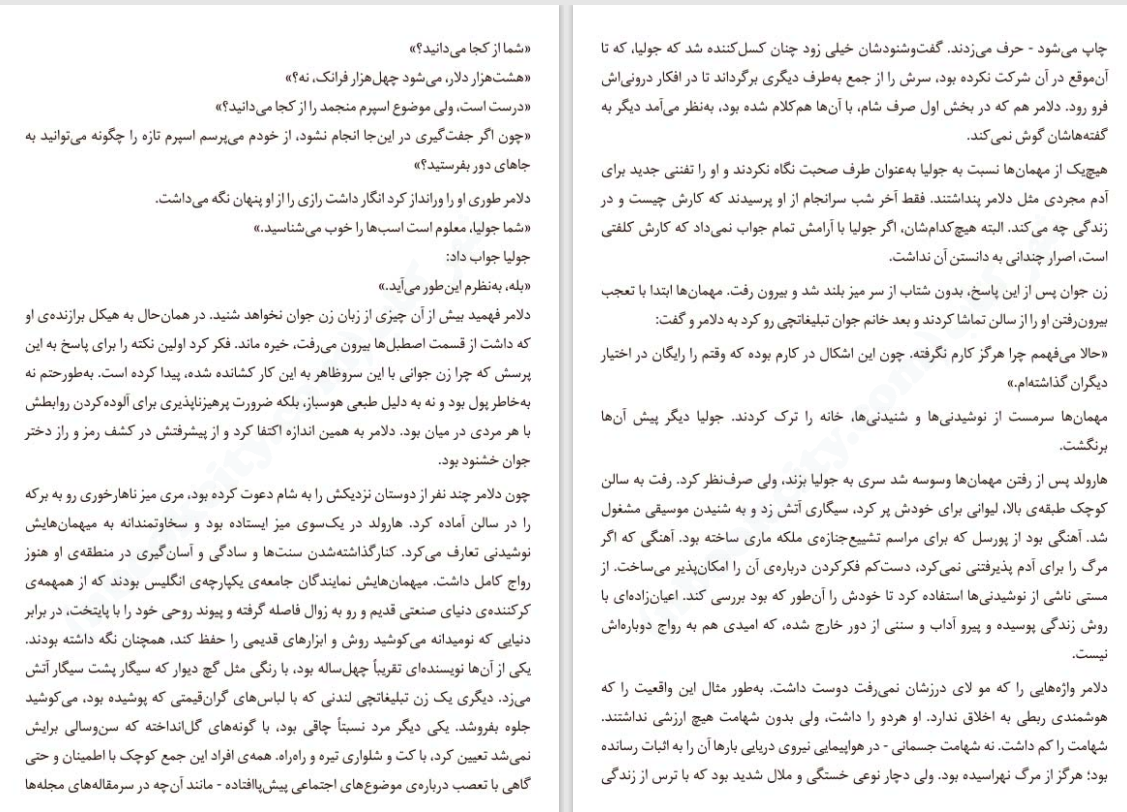 «شما از کجا می‌دانید؟»
«هشت‌هزار دلار، می‌شود چهل‌هزار فرانک، نه؟»
«درست است، ولی موضوع اسپرم منجمد را از کجا می‌دانید؟»
«چون اگر جفت‌گیری در این‌جا انجام نشود، از خودم می‌پرسم اسپرم تازه را چگونه می‌توانید به
جاهای دور بفرستید؟»
دلامر طوری او را ورانداز کرد انگار داشت رازی را از او پنهان نگه می‌داشت.
«شما جولیا، معلوم است اسب‌ها را خوب می‌شناسید.»
جولیا جواب داد:
«بله، به‌نظرم این‌طور می‌آید.»
دلامر فهمید بیش از آن چیزی از زبان زن جوان نخواهد شنید. در همان‌حال به هیکل برازنده‌ی او
که داشت از قسمت اصطبل‌ها بیرون می‌رفت، خیره ماند. فکر کرد اولین نکته را برای پاسخ به این
پرسش که چرا زن جوانی با این سروظاهر به این کار کشانده شده، پیدا کرده است. به‌طورحتم نه
به‌خاطر پول بود و نه به دلیل طبعی هوسباز، بلکه ضرورت پرهیزناپذیری برای آلوده‌کردن روابطش
با هر مردی در میان بود. دلامر به همین اندازه اکتفا کرد و از پیشرفتش در کشف رمز و راز دختر
جوان خشنود بود.
چون دلامر چند نفر از دوستان نزدیکش را به شام دعوت کرده بود، مری میز ناهارخوری رو به برکه
را در سالن آماده کرد. هارولد در یک‌سوی میز ایستاده بود و سخاوتمندانه به میهمان‌هایش
نوشیدنی تعارف می‌کرد. کنارگذاشته‌شدن سنت‌ها و سادگی و آسان‌گیری در منطقه‌ی او هنوز
رواج کامل داشت. میهمان‌هایش نمایندگان جامعه‌ی یکپارچه‌ی انگلیس بودند که از همهمه‌ی
کرکننده‌ی دنیای صنعتی قدیم و رو به زوال فاصله گرفته و پیوند روحی خود را با پایتخت، در برابر
دنیایی که نومیدانه می‌کوشید روش و ابزارهای قدیمی را حفظ کند، همچنان نگه داشته بودند.
یکی از آن‌ها نویسنده‌ای تقریباً چهل‌ساله بود، با رنگی مثل گچ دیوار که سیگار پشت سیگار آتش
می‌زد. دیگری یک زن تبلیغاتچی لندنی که با لباس‌های گران‌قیمتی که پوشیده بود، می‌کوشید
جلوه بفروشد. یکی دیگر مرد نسبتاً چاقی بود، با گونه‌های گل‌انداخته که سن‌وسالی برایش
نمی‌شد تعیین کرد، با کت و شلواری تیره و راه‌راه. همه‌ی افراد این جمع کوچک با اطمینان و حتی
گاهی با تعصب درباره‌ی موضوع‌های اجتماعی پیش‌پاافتاده - مانند آن‌چه در سرمقاله‌های مجله‌ها
چاپ می‌شود - حرف می‌زدند. گفت‌وشنودشان خیلی زود چنان کسل‌کننده شد که جولیا، که تا
آن‌موقع در آن شرکت نکرده بود، سرش را از جمع به‌طرف دیگری برگرداند تا در افکار درونی‌اش
فرو رود. دلامر هم که در بخش اول صرف شام، با آن‌ها هم‌کلام شده بود، به‌نظر می‌آمد دیگر به
گفته‌هاشان گوش نمی‌کند.
هیچ‌یک از مهمان‌ها نسبت به جولیا به‌عنوان طرف صحبت نگاه نکردند و او را تفننی جدید برای
آدم مجردی مثل دلامر پنداشتند. فقط آخر شب سرانجام از او پرسیدند که کارش چیست و در
زندگی چه می‌کند. البته هیچ‌کدام‌شان، اگر جولیا با آرامش تمام جواب نمی‌داد که کارش کلفتی
است، اصرار چندانی به دانستن آن نداشت.
زن جوان پس از این پاسخ، بدون شتاب از سر میز بلند شد و بیرون رفت. مهمان‌ها ابتدا با تعجب
بیرون‌رفتن او را از سالن تماشا کردند و بعد خانم جوان تبلیغاتچی رو کرد به دلامر و گفت:
«حالا می‌فهمم چرا هرگز کارم نگرفته. چون این اشکال در کارم بوده که وقتم را رایگان در اختیار
دیگران گذاشته‌ام.»
مهمان‌ها سرمست از نوشیدنی‌ها و شنیدنی‌ها، خانه را ترک کردند. جولیا دیگر پیش آن‌ها
برنگشت.
هارولد پس از رفتن مهمان‌ها وسوسه شد سری به جولیا بزند، ولی صرف‌نظر کرد. رفت به سالن
کوچک طبقه‌ی بالا، لیوانی برای خودش پر کرد، سیگاری آتش زد و به شنیدن موسیقی مشغول
شد. آهنگی بود از پورسل که برای مراسم تشییع‌جنازه‌ی ملکه ماری ساخته بود. آهنگی که اگر
مرگ را برای آدم پذیرفتنی نمی‌کرد، دست‌کم فکرکردن درباره‌ی آن را امکان‌پذیر می‌ساخت. از
مستی ناشی از نوشیدنی‌ها استفاده کرد تا خودش را آن‌طور که بود بررسی کند. اعیان‌زاده‌ای با
روش زندگی پوسیده و پیرو آداب و سننی از دور خارج شده، که امیدی هم به رواج دوباره‌اش
نیست.
دلامر واژه‌هایی را که مو لای درزشان نمی‌رفت دوست داشت. به‌طور مثال این واقعیت را که
هوشمندی ربطی به اخلاق ندارد. او هردو را داشت، ولی بدون شهامت هیچ ارزشی نداشتند.
شهامت را کم داشت. نه شهامت جسمانی - در هواپیمایی نیروی دریایی بارها آن را به اثبات رسانده
بود؛ هرگز از مرگ نهراسیده بود. ولی دچار نوعی خستگی و ملال شدید بود که با ترس از زندگی